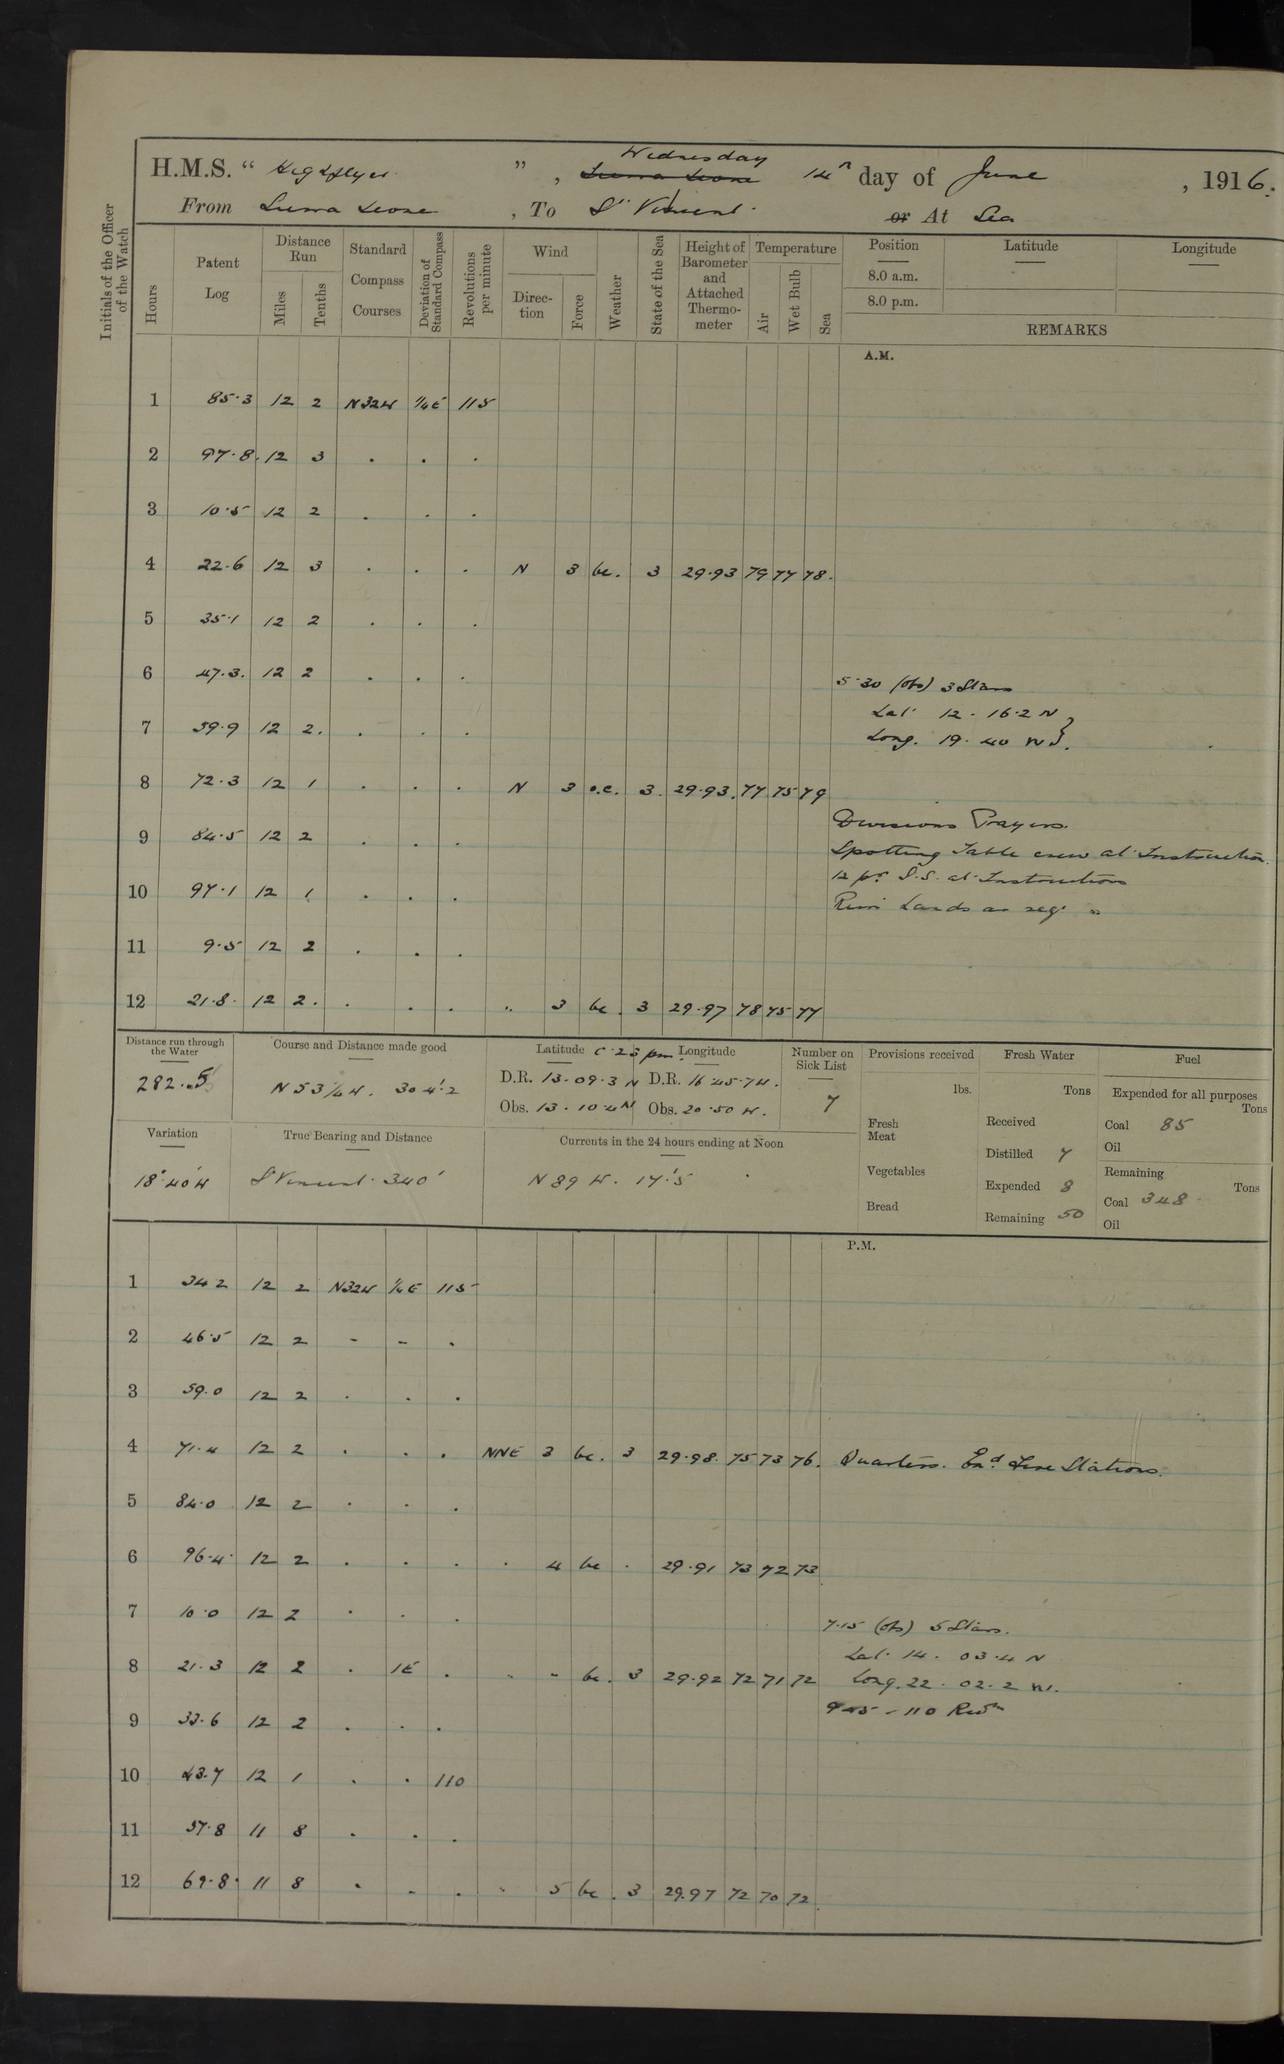 Wednesday
H.M.S. “ Highflyer ” , Sierra Leone 14th day of June , 1916.
From Sierra Leone , To St Vincent or At Sea
Initials of the Officer of the Watch
Hours Patent Log Distance Run Miles Tenths Standard Compass Courses Deviation of Standard Compass Revolutions per minute Wind Direction Force Weather State of the Sea Height of Barometer and Attached Thermometer Temperature Air Wet Bulb Sea Position Latitude Longitude
8.0 a.m.
8.0 p.m.
REMARKS
A.M.
1 85.3 12 2 N32W ¼E 115
2 97.8 12 3 . . .
3 10.5 12 2 . . .
4 22.6 12 3 . . . N 3 bc. 3 29.93 79 77 78.
5 35.1 12 2 . . .
6 47.3. 12 2 . . .
5.30 (obs) 3 Stars
Lat. 12. 16.2 N
7 59.9 12 2. . . .
Long. 19. 40 W
8 72.3 12 1 . . . N 3 o.c. 3. 29.93. 77 75 79
Divisions Prayers.
9 84.5 12 2 . . .
Spotting Table crew at Instruction.
12 pr S.S. at Instructions
10 97.1 12 1 . . .
Hands as req.
11 9.5 12 2 . . .
12 21.8. 12 2. . . . " 3 bc. 3 29.97 78 75 77
Distance run through the Water
282.5
Course and Distance made good
N 53¼ W. 304'.2
Latitude Longitude
D.R. 13.09.3 N D.R. 16 45.7 W.
Obs. 13.10.4 N Obs. 20.50 W.
Number on Sick List
7
Provisions received
lbs.
Fresh Meat
Vegetables
Bread
Fresh Water
Tons
Received
Distilled 7
Expended 8
Remaining 50
Fuel
Expended for all purposes
Tons
Coal 85
Oil
Remaining
Tons
Coal 348
Oil
Variation
18° 40' W
True Bearing and Distance
St Vincent. 340'
Currents in the 24 hours ending at Noon
N 89 W. 17'.5
P.M.
1 34 2 12 2 N32W ¼E 115
2 46.5 12 2 - - .
3 59.0 12 2 . . .
4 71.4 12 2 . . . NNE 3 bc. 3 29.98. 75 73 76. Quarters. Exd Fire Stations.
5 84.0 12 2 . . .
6 96.4. 12 2 . . . . 4 bc . 29.91 73 72 73
7 10.0 12 2 . . .
7.15 (obs) 5 Stars.
Lat. 14. 03.4 N
8 21.3 12 2 . 1E . . - bc. 3 29.92 72 71 72 Long. 22. 02.2 W.
9 33.6 12 2 . . .
9.45 - 110 Revs
10 43.7 12 1 . . 110
11 57.8 11 8 . . .
12 69.8. 11 8 . . . . 5 bc. 3 29.97 72 70 72.